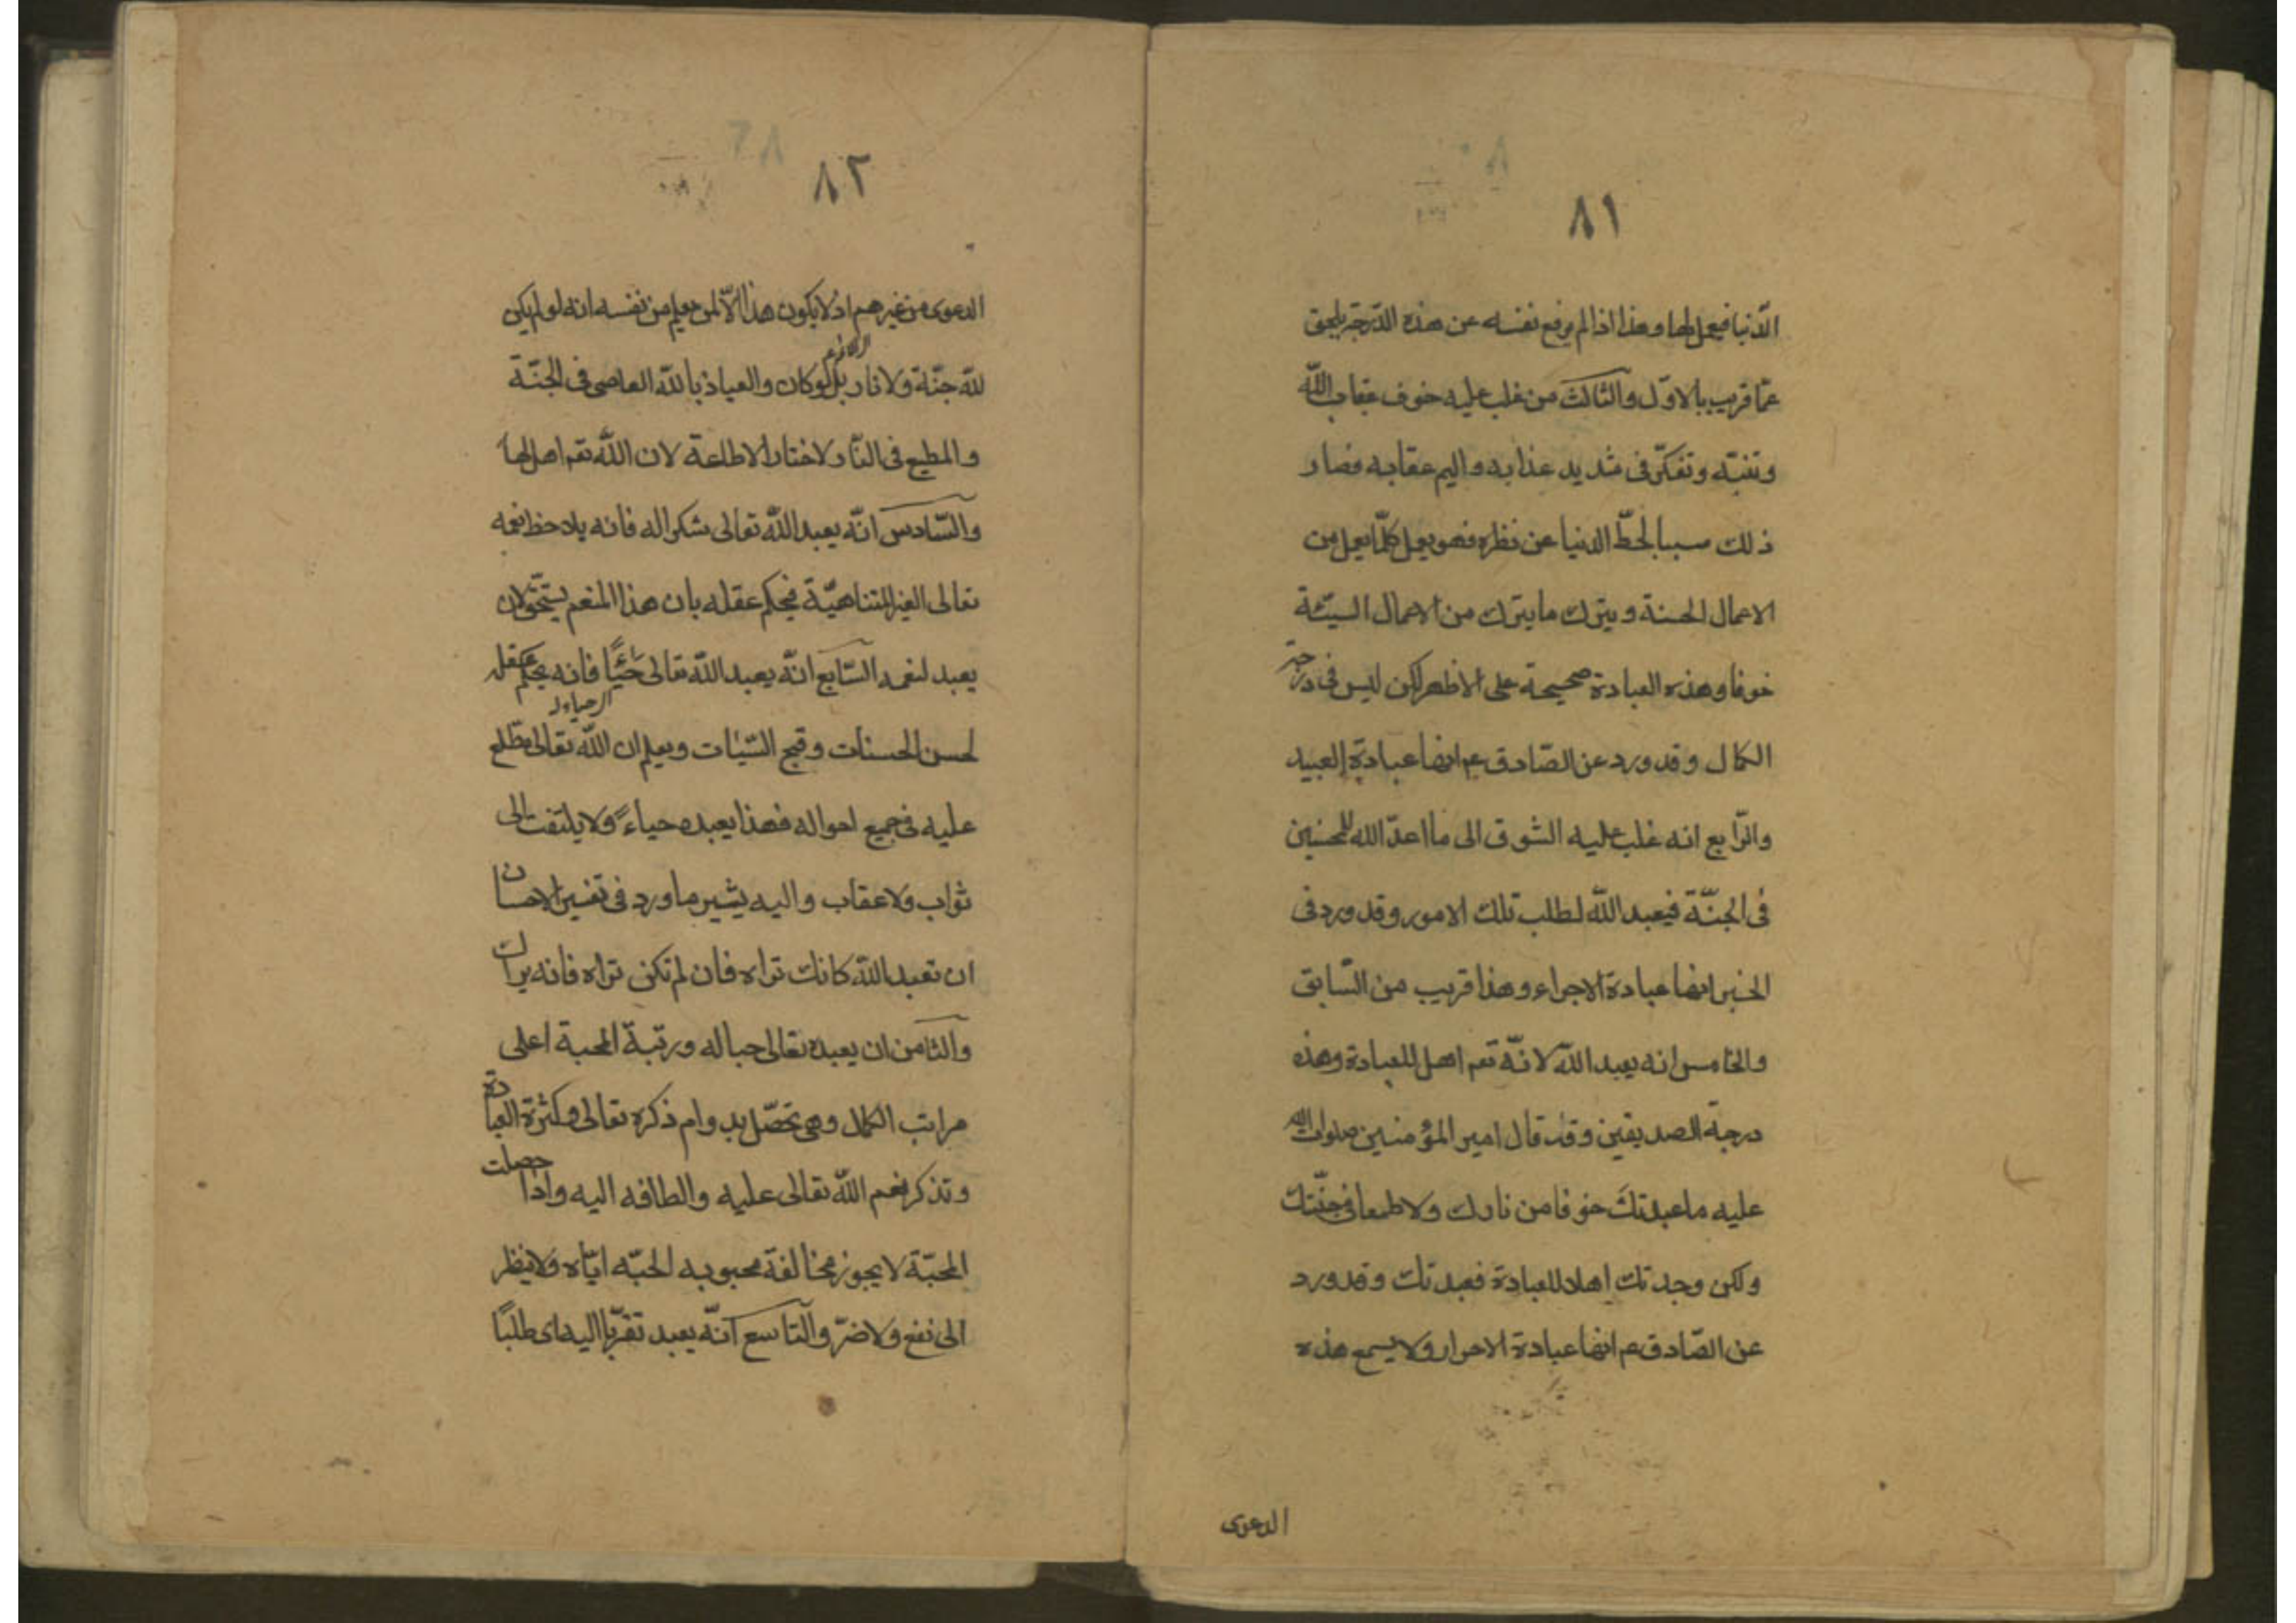 ٨١
الدّنيا فيعمل لها وهذا اذا لم يرفع نفسه عن هذه الدّرجة يلحق
عمّا قريب بالاوّل والثالث من غلب عليه خوف عقاب اللّه
وتنبّه وتفكّر فى شديد عذابه واليم عقابه فصار
ذلك سببا لحطّ الدنيا عن نظره فهو يعمل كلّما يعمل من
الاعمال الحسنة ويترك ما يترك من الاعمال السيّئة
خوفا وهذه العبادة صحيحة على الاظهر لكن ليس فى درجة
الكمال وقد ورد عن الصّادق عم انها عبادة العبيد
والرّابع انه غلب عليه الشوق الى ما اعدّ الله للمحسنين
فى الجنّة فيعبد اللّه لطلب تلك الامور وقد ورد فى
الخبر انها عبادة الاجراء وهذا قريب من السّابق
والخامس انه يعبد اللّه لانّه تعم اهل للعبادة وهذه
درجة الصديقين وقد قال امير المؤمنين صلوات الله
عليه ما عبدتكَ خوفا من نارك ولا طمعا فى جنّتك
ولكن وجدتك اهلا للعبادة فعبدتك وقد ورد
عن الصّادق عم انها عبادة الاحرار ولا يسمع هذه
الدعوى
٨٢
الدعوى من غيرهم اذ لا يكون هذا الاّ لمن يعلم من نفسه انه لو لم يكن
للّه جنّة ولا نار بل لو كان والعياذ باللّه العاصى فى الجنّة
والمطيع فى النّار لاختار الاطاعة لان اللّه تعم اهل لها
والسّادس انّه يعبد اللّه تعالى شكرا له فانه يلاحظ نعمه
تعالى الغير المتناهيّة فيحكم عقله بان هذا المنعم يستحق لان
يعبد لنعمه السّابع انّه يعبد اللّه تعالى حياءً فانه يحكم عقله
لحسن الحسنات وقبح السّيئات ويعلم ان اللّه تعالى مطّلع
عليه فى جميع احواله فهذا يعبده حياءً ولا يلتفت الى
ثواب ولا عقاب واليه يشير ما ورد فى تفسير الاحسان
ان تعبد اللّه كانك تراه فان لم تكن تراه فانه يراك
والثامن ان يعبده تعالى حبا له ورتبة المحبة اعلى
مراتب الكمال وهى تحصّل بدوام ذكره تعالى وكثرة العبادة
وتذكر نعم اللّه تعالى عليه والطافه اليه واذا حصلت
المحبّة لا يجوز مخالفة محبوبه لحبّه ايّاه ولا ينظر
الى نفع ولا ضرّ والتاسع انّه يعبد تقرّبا اليه اى طلبًا